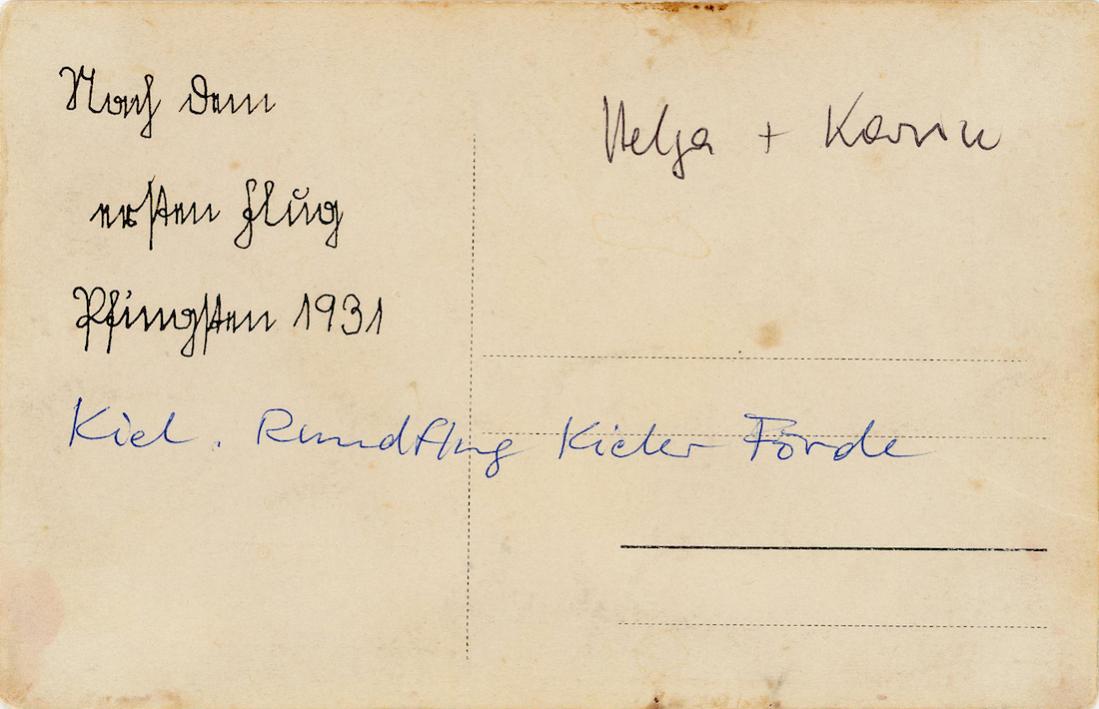 Nach dem
ersten Flug
Pfingsten 1931
Helga + Karin
Kiel. Rundflug Kieler Förde